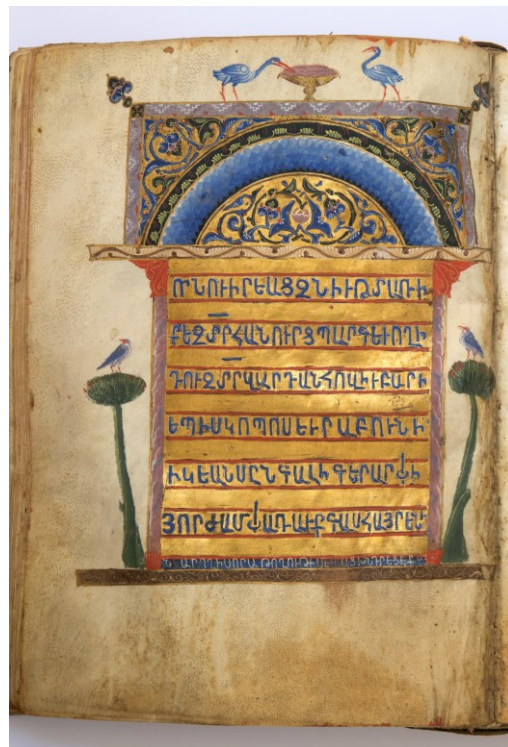 ՈՐՆՈՒԻՐԵԱՑԶՆԻՒԹՄԱՌԻ
ՔԵԶՄՐՀԱՆՈՒՐՑՊԱՐԳԵՒՈՂԻ
ԴՈՒԶՄՐՎԱՐԴԱՆՀՈՎԻՒԲԱՐԻ
ԵՊԻՍԿՈՊՈՍԵՒՐԱԲՈՒՆԻ
ԻԿԵԱՆՍԸՆԳԱԼԻԳԵՐԱՐՓԻ
ՅՈՐԺԱՄՓԱՌԱՒՔԳԱՍՀԱՅՐԵՆԻ